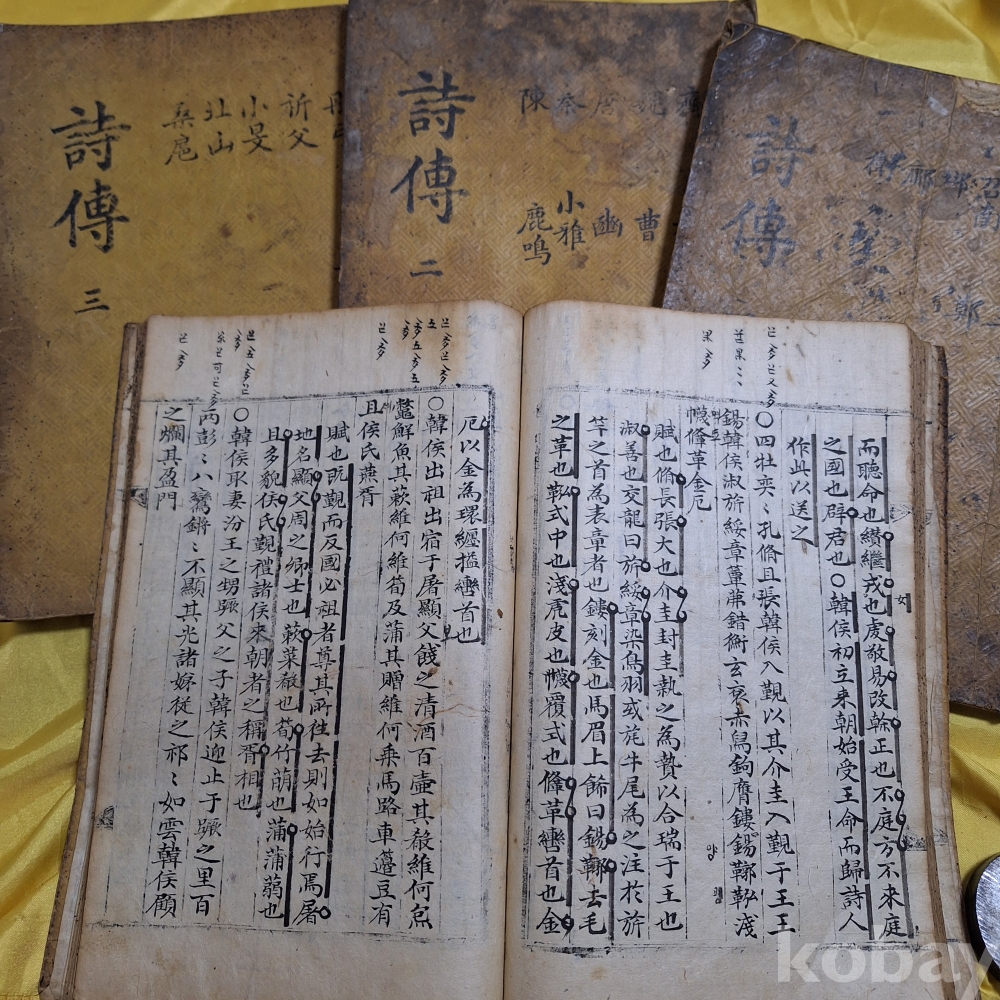 詩傳
三
祈父
小旻
北山
桑扈
詩傳
二
唐
秦
陳
曹
豳
小雅
鹿鳴
詩傳
一
召南
邶
鄘
衛
鄭
而聽命也纘繼戎女也虔敬易改榦正也不庭方不來庭
之國也辟君也○韓侯初立來朝始受王命而歸詩人
作此以送之
○四牡奕〻孔脩且張韓侯入覲以其介圭入覲于王王
錫韓侯淑旂綏章簟茀錯衡玄袞赤舄鉤膺鏤錫鞹鞃淺
幭鞗革金厄
賦也脩長張大也介圭封圭執之為贄以合瑞于王也
淑善也交龍曰旂綏章染鳥羽或旄牛尾為之注於旂
竿之首為表章者也鏤刻金也馬眉上飾曰錫鞹去毛
之革也鞃式中也淺虎皮也幭覆式也鞗革轡首也金
厄以金為環纏搤轡首也
○韓侯出祖出宿于屠顯父餞之清酒百壷其殽維何炰
鼈鮮魚其蔌維何維筍及蒲其贈維何乘馬路車籩豆有
且侯氏燕胥
賦也既覲而反國必祖者尊其所往去則如始行焉屠
地名顯父周之卿士也蔌菜殽也筍竹萌也蒲蒲蒻也
且多貌侯氏覲禮諸侯來朝者之稱胥相也
○韓侯取妻汾王之甥蹶父之子韓侯迎止于蹶之里百
兩彭〻八鸞鏘〻不顯其光諸娣從之祁〻如雲韓侯顧
之爛其盈門
kobay